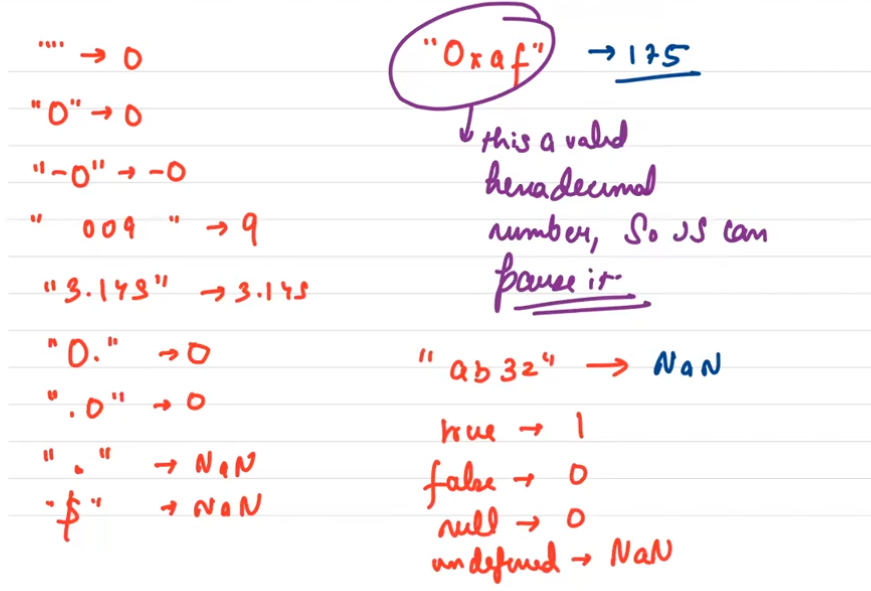 "" → 0
"0" → 0
"-0" → -0
" 009 " → 9
"3.145" → 3.145
"0." → 0
".0" → 0
"." → NaN
"$" → NaN
"0xaf" → 175
this a valid
hexadecimal
number, So JS can
parse it.
"ab32" → NaN
true → 1
false → 0
null → 0
undefined → NaN